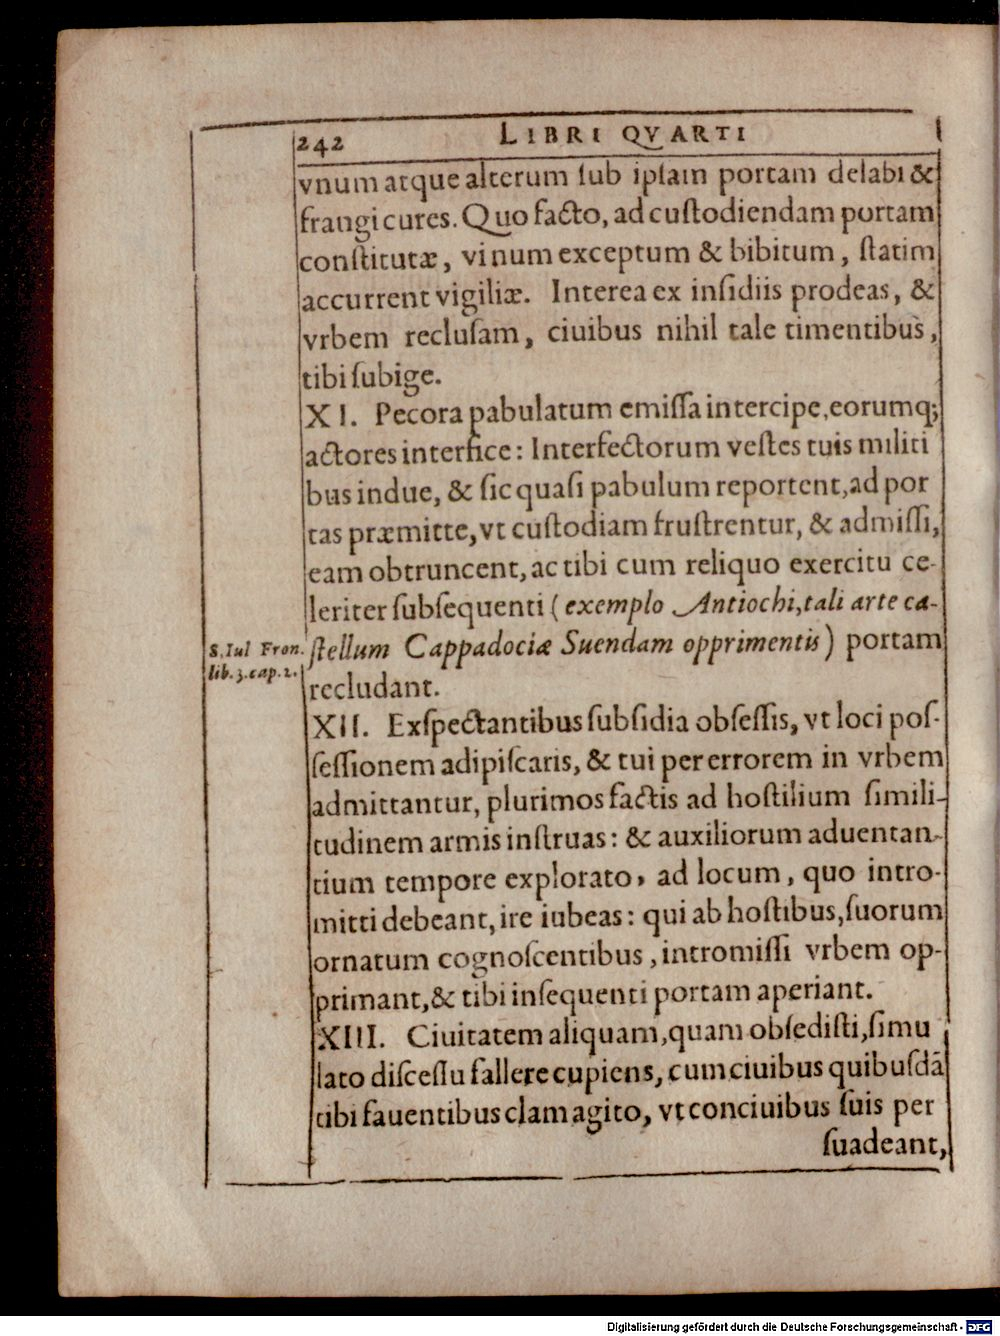 242 LIBRI QVARTI
vnum atque alterum ſub ipſam portam delabi &
frangi cures. Quo facto, ad cuſtodiendam portam
conſtitutæ, vinum exceptum & bibitum, ſtatim
accurrent vigiliæ. Interea ex inſidiis prodeas, &
vrbem recluſam, ciuibus nihil tale timentibus,
tibi ſubige.
XI. Pecora pabulatum emiſſa intercipe, eorumq;
actores interfice: Interfectorum veſtes tuis militi
bus indue, & ſic quaſi pabulum reportent, ad por
tas præmitte, vt cuſtodiam fruſtrentur, & admiſſi,
eam obtruncent, ac tibi cum reliquo exercitu ce-
leriter ſubſequenti (exemplo Antiochi, tali arte ca-
S. Iul Fron.
lib. 3. cap. 2.
ſtellum Cappadociæ Suendam opprimentis) portam
recludant.
XII. Exſpectantibus ſubſidia obſeſſis, vt loci poſ-
ſeſſionem adipiſcaris, & tui per errorem in vrbem
admittantur, plurimos factis ad hoſtilium ſimili-
tudinem armis inſtruas: & auxiliorum aduentan-
tium tempore explorato, ad locum, quo intro-
mitti debeant, ire iubeas: qui ab hoſtibus, ſuorum
ornatum cognoſcentibus, intromiſſi vrbem op-
primant, & tibi inſequenti portam aperiant.
XIII. Ciuitatem aliquam, quam obſediſti, ſimu
lato diſceſſu fallere cupiens, cum ciuibus quibuſdā
tibi fauentibus clam agito, vt conciuibus ſuis per
ſuadeant,
Digitalisierung gefördert durch die Deutsche Forschungsgemeinschaft - DFG